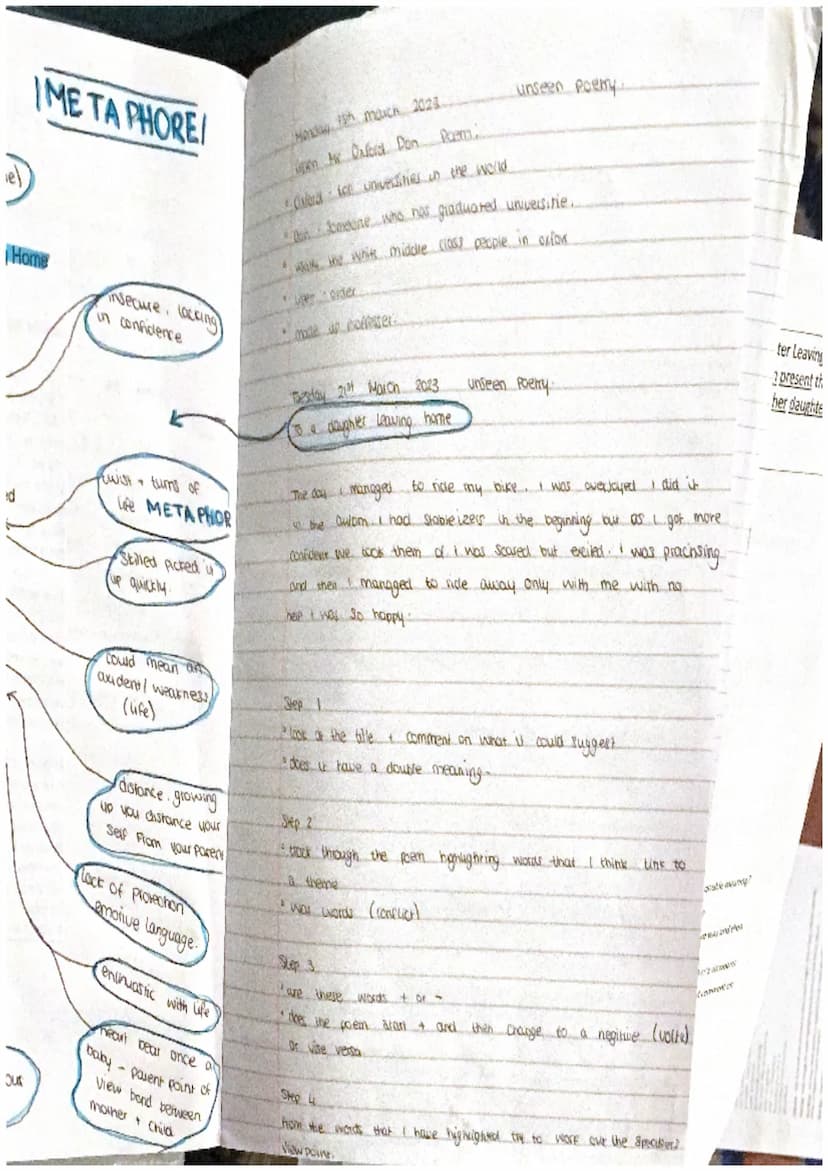 METAPHORE
Home
insecure, lacking
in confidence
twist + turns of
life METAPHOR
Skilled picked it
up quickly.
could mean an
axident/ weakness
(life)
distance, growing
up you distance your
self from your parent
lack of protection
emotive language.
heart bear once a
baby - parent point of
view bond between
mother + child
ous
unseen poetry.
Monday 15th march 2023
Oxford Don Poem:
Oxford - universities in the world
Don - someone who has graduated universitie.
the white middle class people in oxfor
order
made up
Tuesday 21st March 2023 unseen Poetry.
To a daugher Leaving home
The day I managed to ride my bike. I was overjoyed I did it
in the autom. I had stableizers in the beginning but as I got more
confident we took them of I was scared but exited. I was practising
and then I managed to ride away only with me with no
help I was so happy.
Step 1
look at the title + comment on what it could suggest
does it have a double meaning.
Step 2
track through the poem highlighting words that I think link to
a theme
war words (conflict)
Step 3
are these words + or -
does the poem start + and then change to a negitive (volta)
or vise versa
Step 4
from the words that I have highlighted try to work out the speakers
viewpoint.
ter Leaving
present th
her daughte